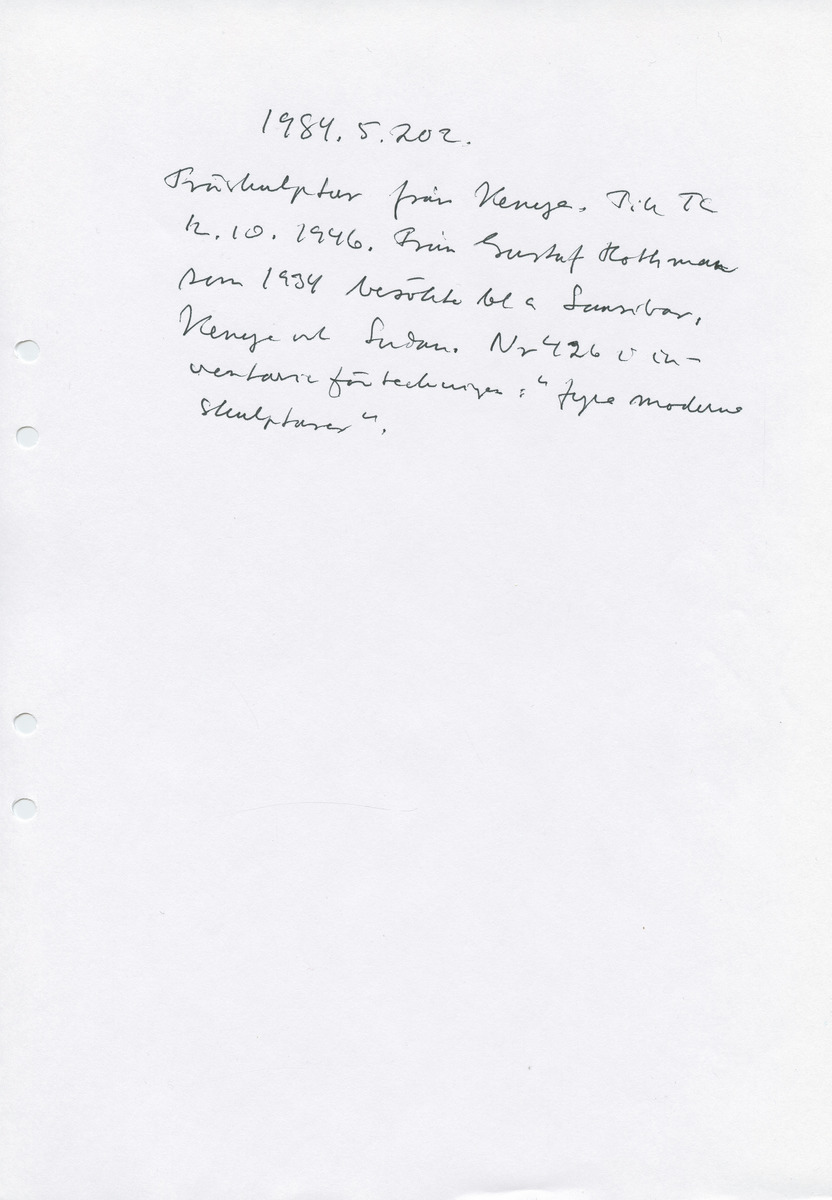 1984.5.202.
Träskulptur från Kenya. Till TC
12.10.1946. Från Gustaf Rothman
som 1934 besökte bl a Sansibar,
Kenya och Sudan. Nr 426 i in-
ventarieförteckningen: "fyra moderna
skulpturer".